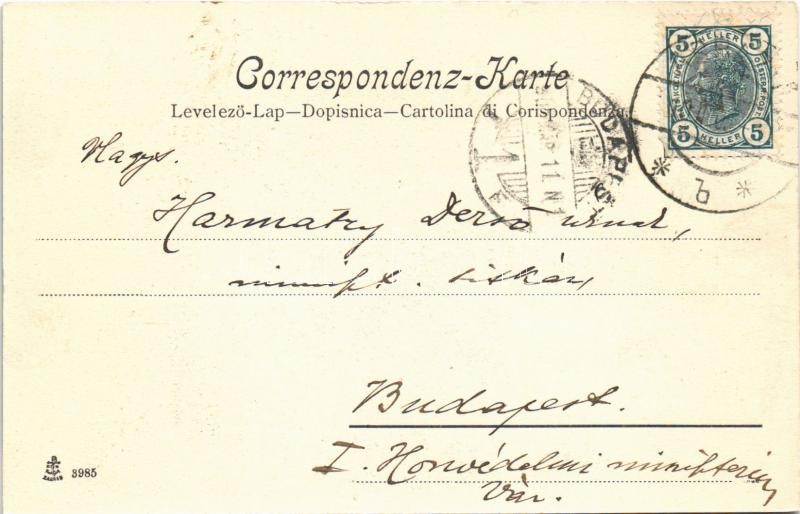 5 HELLER 5
5 HELLER 5
Correspondenz-Karte
Levelezö-Lap—Dopisnica—Cartolina di Corispondenza
BUDAPEST
11 N1
b
Nagys.
Harmatzy Dezső úrnak,
miniszt. titkár
Budapest.
I. Honvédelmi miniszterium
Vár.
3985